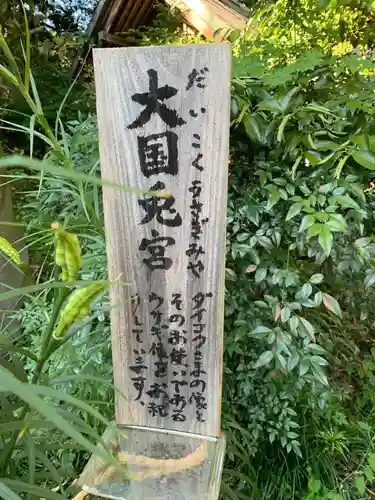 だいこくうさぎみや
大国兎宮
ダイコクさまの像と
そのお使いである
ウサギ像をお祀
りしています。